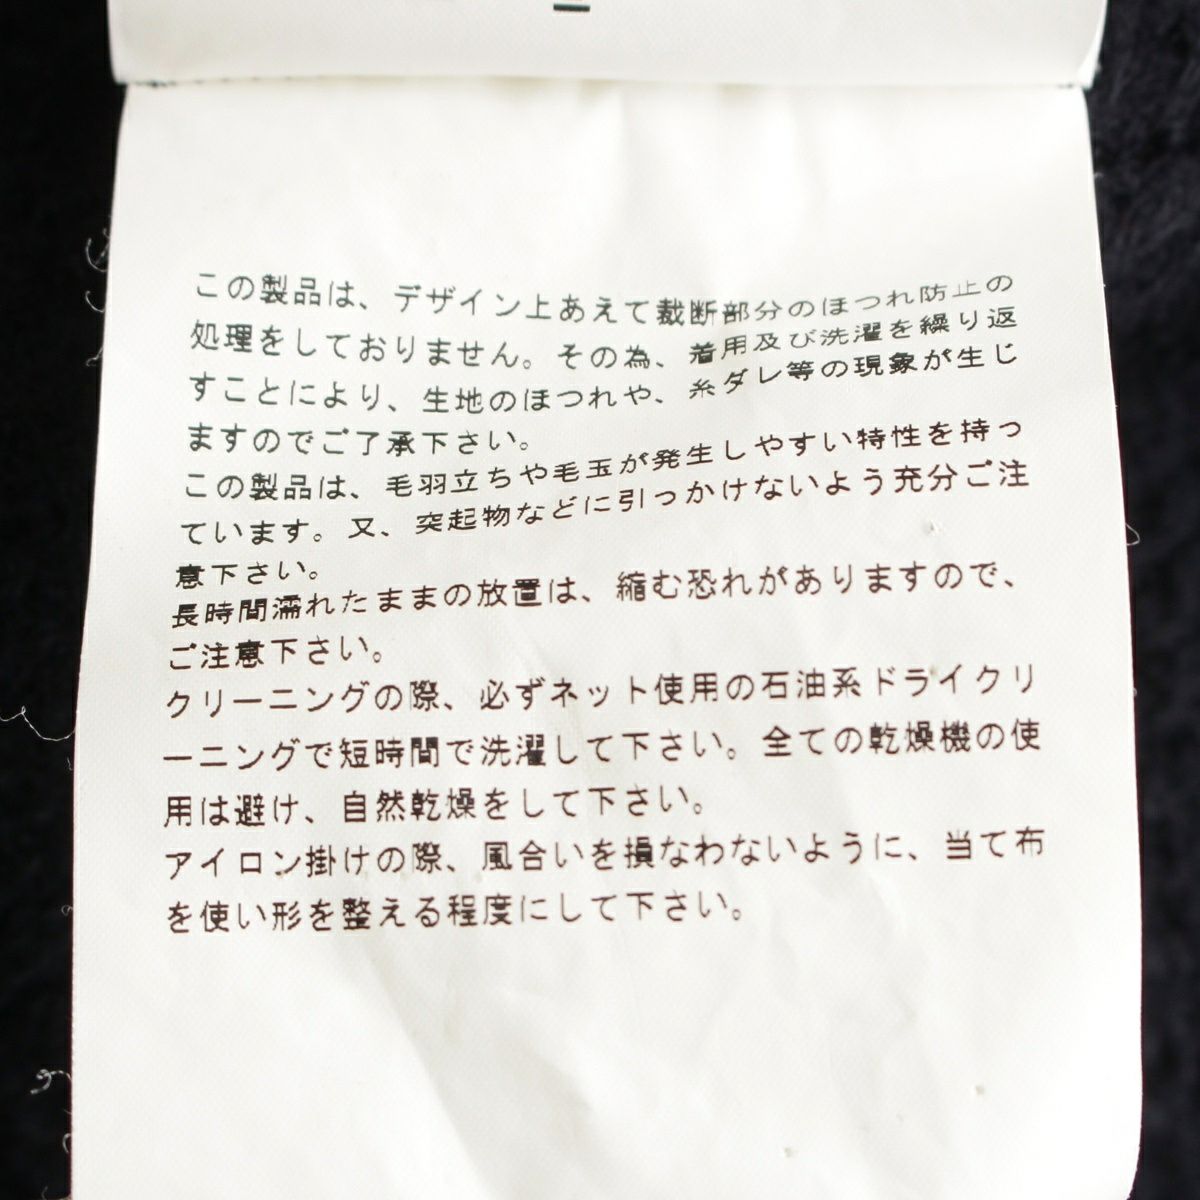 この製品は、デザイン上あえて裁断部分のほつれ防止の
処理をしておりません。その為、着用及び洗濯を繰り返
すことにより、生地のほつれや、糸ダレ等の現象が生じ
ますのでご了承下さい。
この製品は、毛羽立ちや毛玉が発生しやすい特性を持っ
ています。又、突起物などに引っかけないよう充分ご注
意下さい。
長時間濡れたままの放置は、縮む恐れがありますので、
ご注意下さい。
クリーニングの際、必ずネット使用の石油系ドライクリ
ーニングで短時間で洗濯して下さい。全ての乾燥機の使
用は避け、自然乾燥をして下さい。
アイロン掛けの際、風合いを損なわないように、当て布
を使い形を整える程度にして下さい。